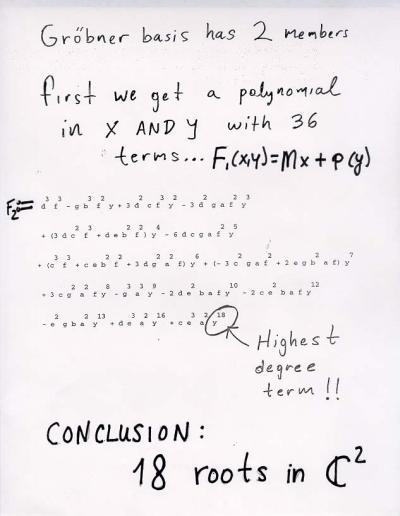 Gröbner basis has 2 members
first we get a polynomial
in X AND Y with 36
terms... F₁(x,y)=Mx+p(y)
F₂= d³f³-gb³f²y+3d²cf³y²-3d²gaf²y³
+(3dc²f³+deb²f²)y⁴-6dcgaf²y⁵
+(c³f³+ceb²f²+3dg²a²f)y⁶+(-3c²gaf²+2egb²af)y⁷
+3cg²a²fy⁸-g³a³y⁹-2debafy¹⁰-2cebafy¹²
-e²gba²y¹³+de²a³y¹⁶+ce²a³y¹⁸
Highest
degree
term !!
CONCLUSION:
18 roots in ℂ²